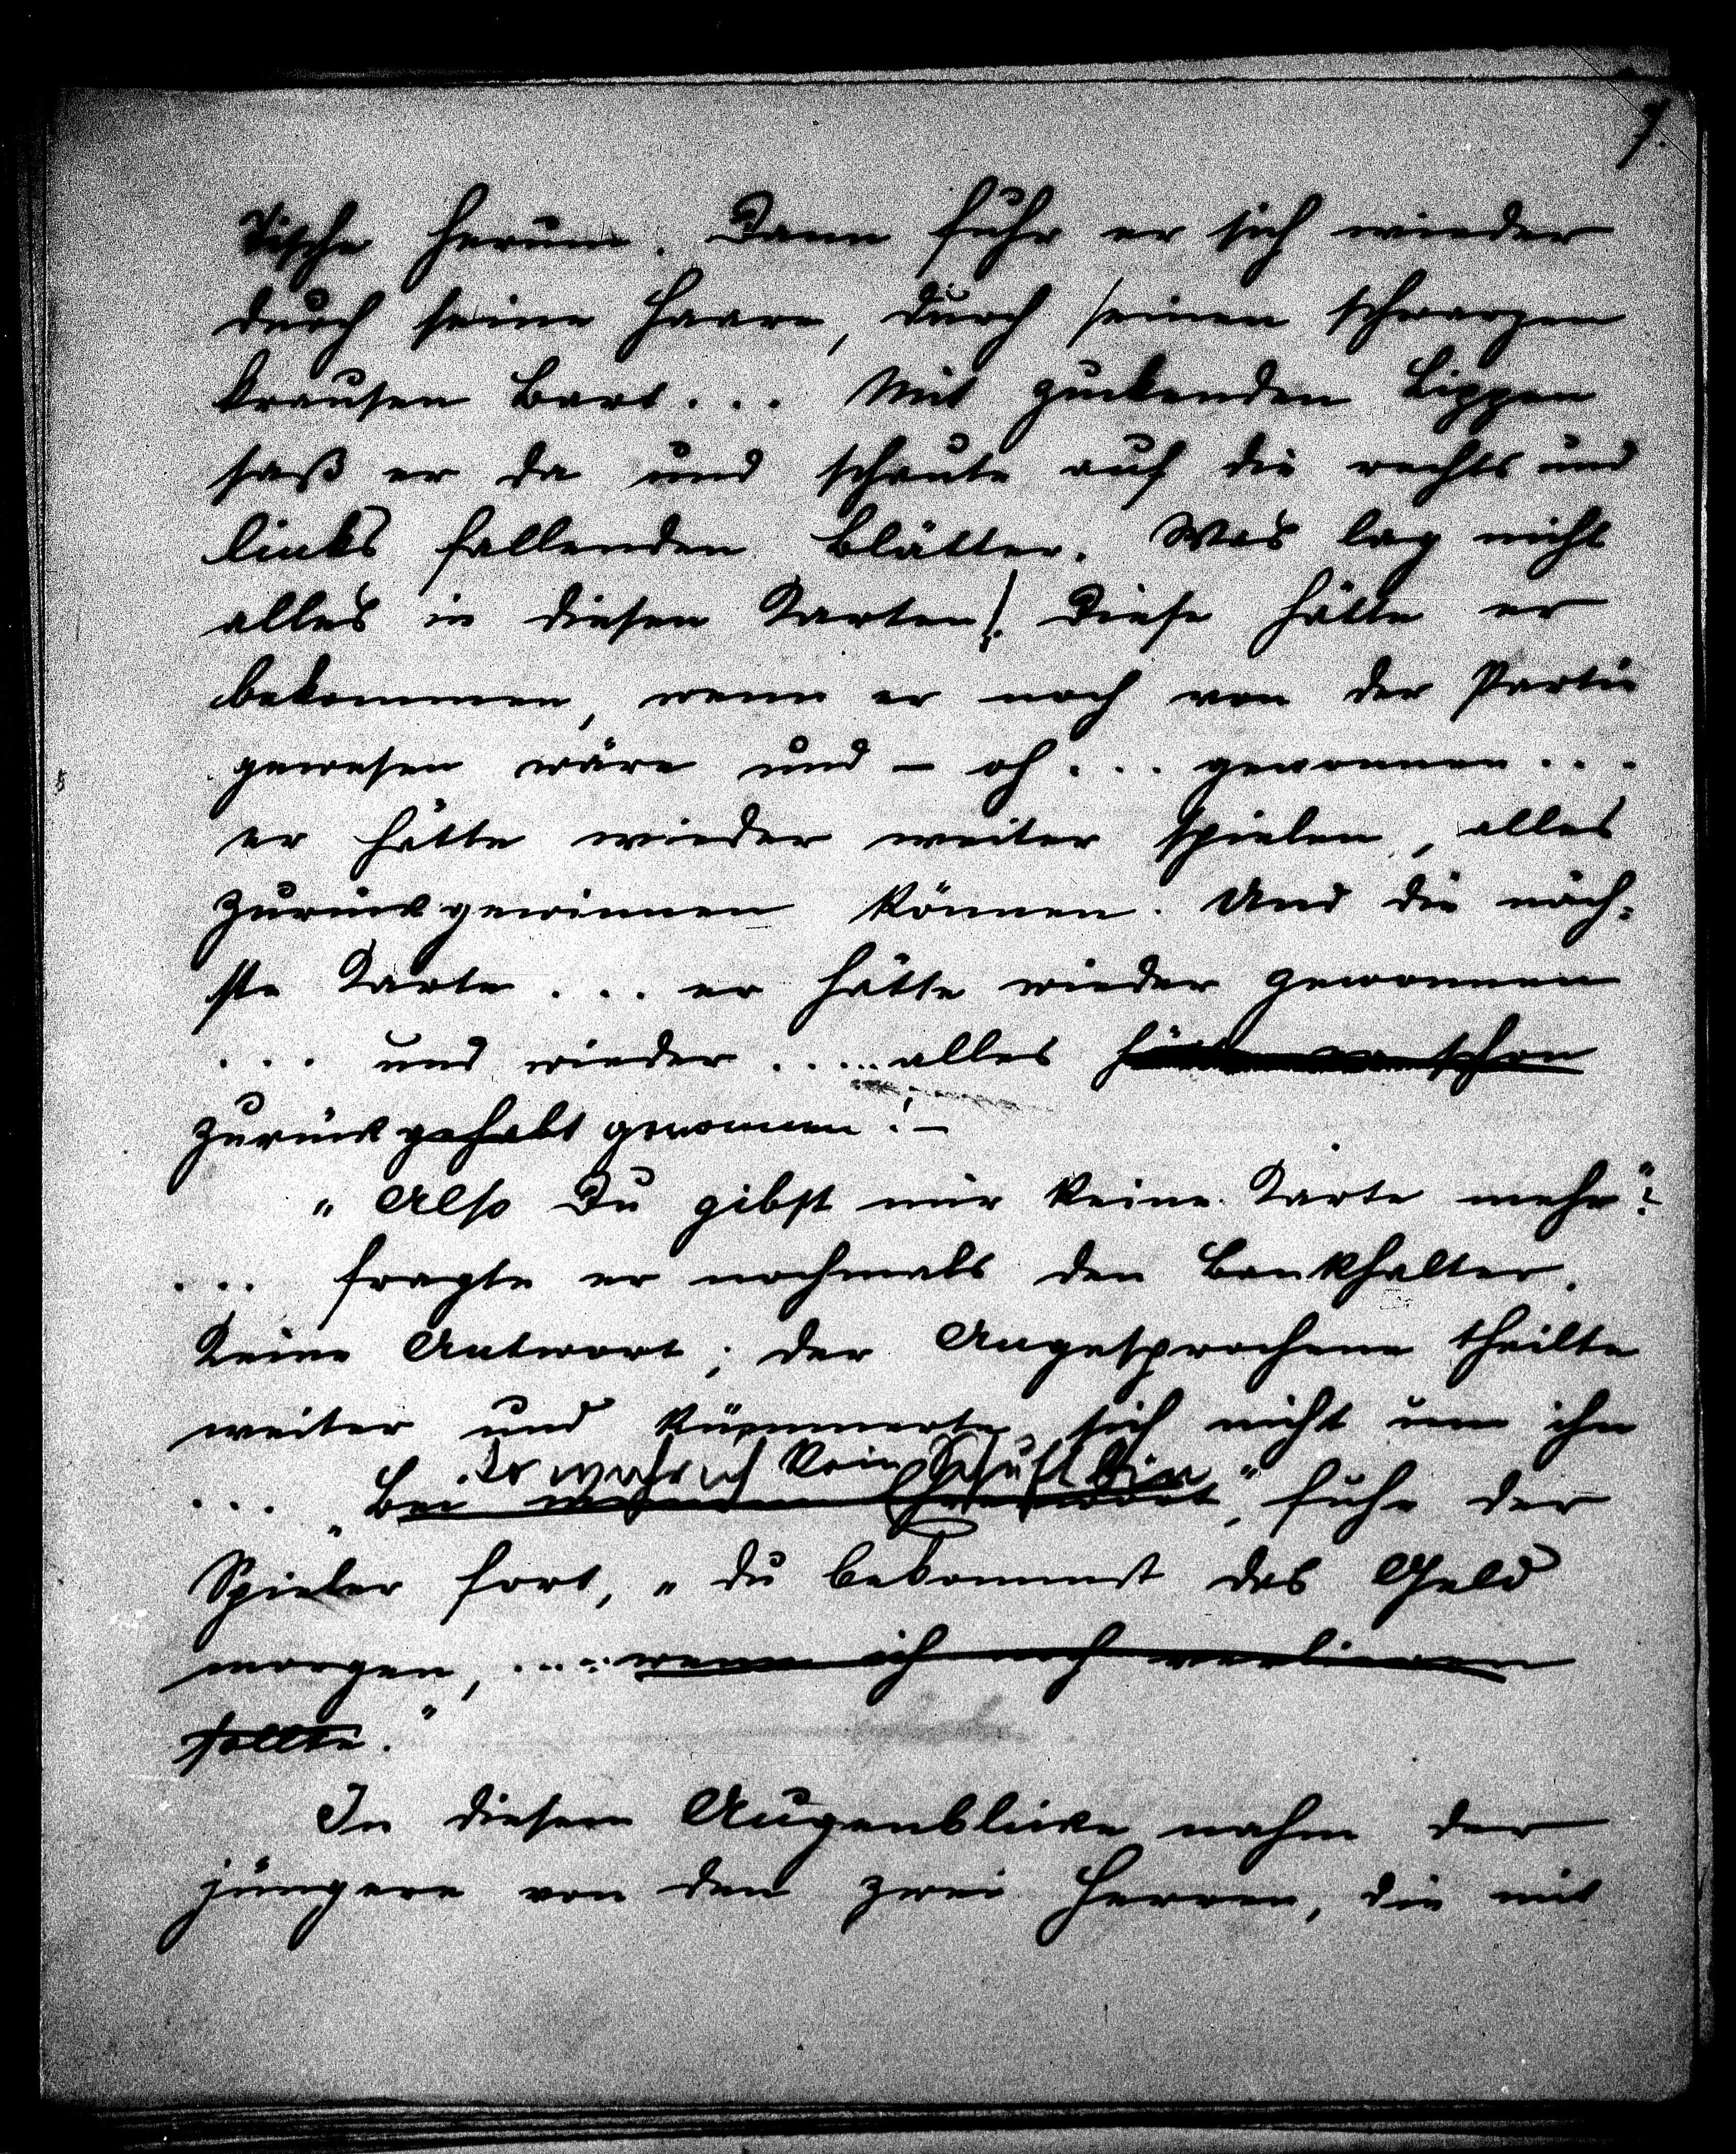 7.
Tische herum. Dann fuhr er sich wieder
durch seine Haare, durch seinen schwarzen
krausen Bart... Mit zuckenden Lippen
saß er da und schaute auf die rechts und
links fallenden Blätter. Was lag nicht
alles in diesen Karten! Diese hätte er
bekommen, wenn er noch von der Partie
gewesen wäre und – oh... gewonnen...
er hätte wieder weiter spielen, alles
zurückgewinnen können. Und die näch-
ste Karte... er hätte wieder gewonnen
... und wieder..... alles hätte er schon
zurück gehabt gewonnen! –
"Also Du gibst mir keine Karte mehr"?
... fragte er nochmals den Bankhalter.
Keine Antwort; der Angesprochene theilte
weiter und kümmerte sich nicht um ihn
So wahr ich kein Schuft bin
... "Bei meinem Ehrenwort", fuhr der
Spieler fort, "du bekommst das Geld
morgen, .... wenn ich noch verlieren
sollte."
In diesem Augenblicke nahm der
jüngere von den zwei Herren, die mit